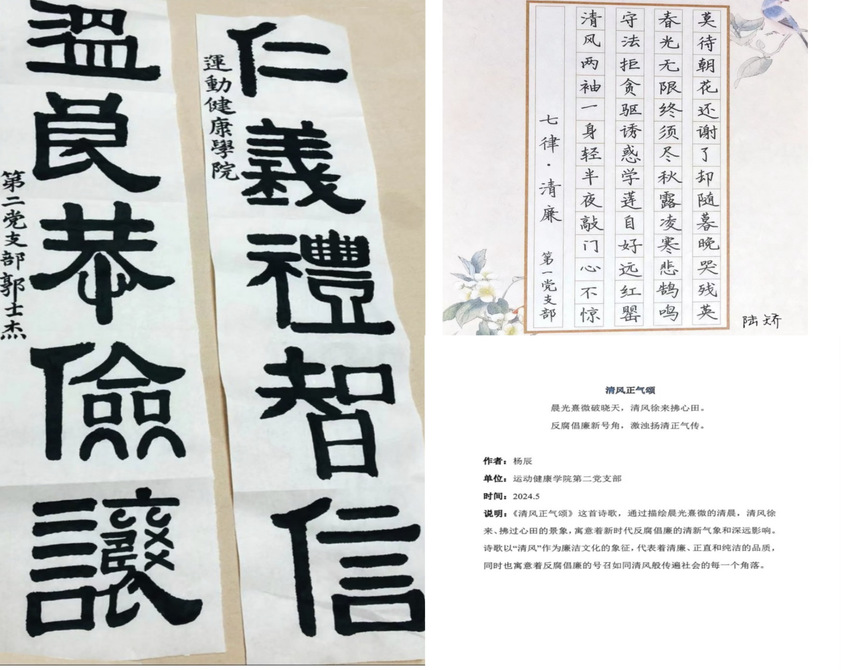 仁義禮智信
運動健康學院
溫良恭儉讓
第二党支部郭士杰
七律·清廉 第一党支部
清风两袖一身轻半夜敲门心不惊
守法拒贪驱诱惑学莲自好远红罂
春光无限终须尽秋露凌寒悲鹄鸣
莫待朝花还谢了却随暮晚哭残英
陆矫
清风正气颂
晨光熹微破晓天，清风徐来拂心田。
反腐倡廉新号角，激浊扬清正气传。
作者：杨辰
单位：运动健康学院第二党支部
时间：2024.5
说明：《清风正气颂》这首诗歌，通过描绘晨光熹微的清晨，清风徐
来、拂过心田的景象，寓意着新时代反腐倡廉的清新气象和深远影响。
诗歌以“清风”作为廉洁文化的象征，代表着清廉、正直和纯洁的品质，
同时也寓意着反腐倡廉的号召如同清风般传遍社会的每一个角落。